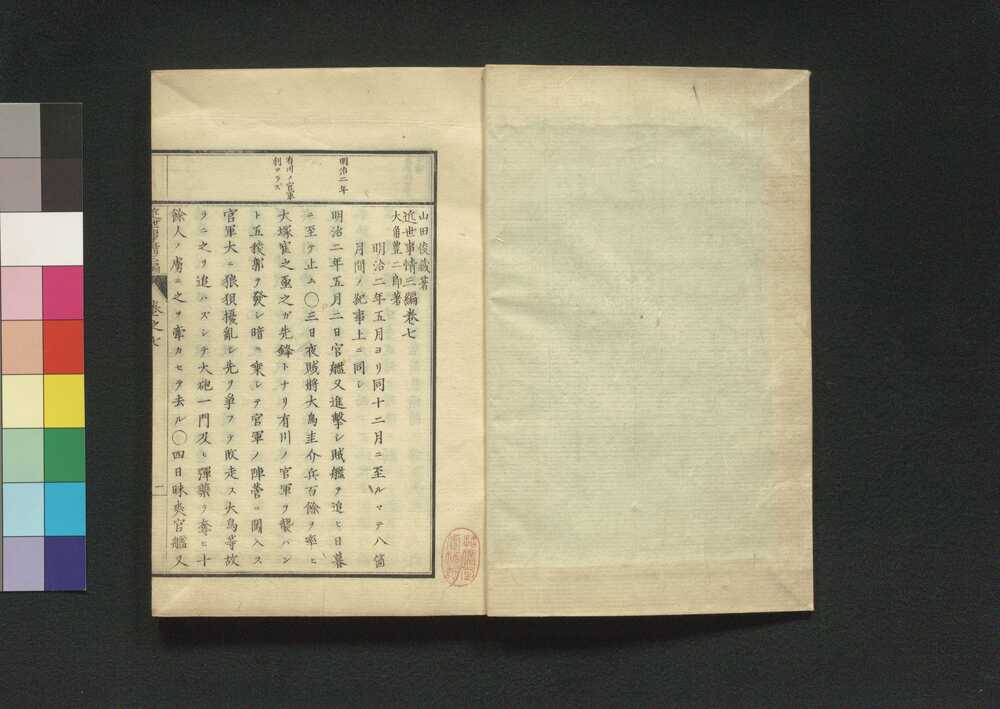 明治二年
有川ノ官軍
利アラズ
山田俊蔵著
近世事情三編巻七
大角豊二郎著
明治二年五月ヨリ同十二月ニ至ルマテ八箇
月間ノ紀事上ニ同シ
明治二年五月二日官艦又進撃シ賊艦ヲ追ヒ日暮
ニ至テ止ム〇三日夜賊將大鳥圭介兵百餘ヲ率ヒ
大塚寉之亟之ガ先鋒トナリ有川ノ官軍ヲ襲バン
ト五稜郭ヲ發シ暗ニ乗シテ官軍ノ陣營ニ闖入ス
官軍大ニ狼狽擾亂シ先ヲ爭フテ敗走ス大鳥等故
ラニ之ヲ追ハズシテ大砲一門及ヒ彈藥ヲ奪ヒ十
餘人ノ虜ニ之ヲ牽カセテ去ル〇四日昧爽官艦又
近世事情三編
巻之七
一